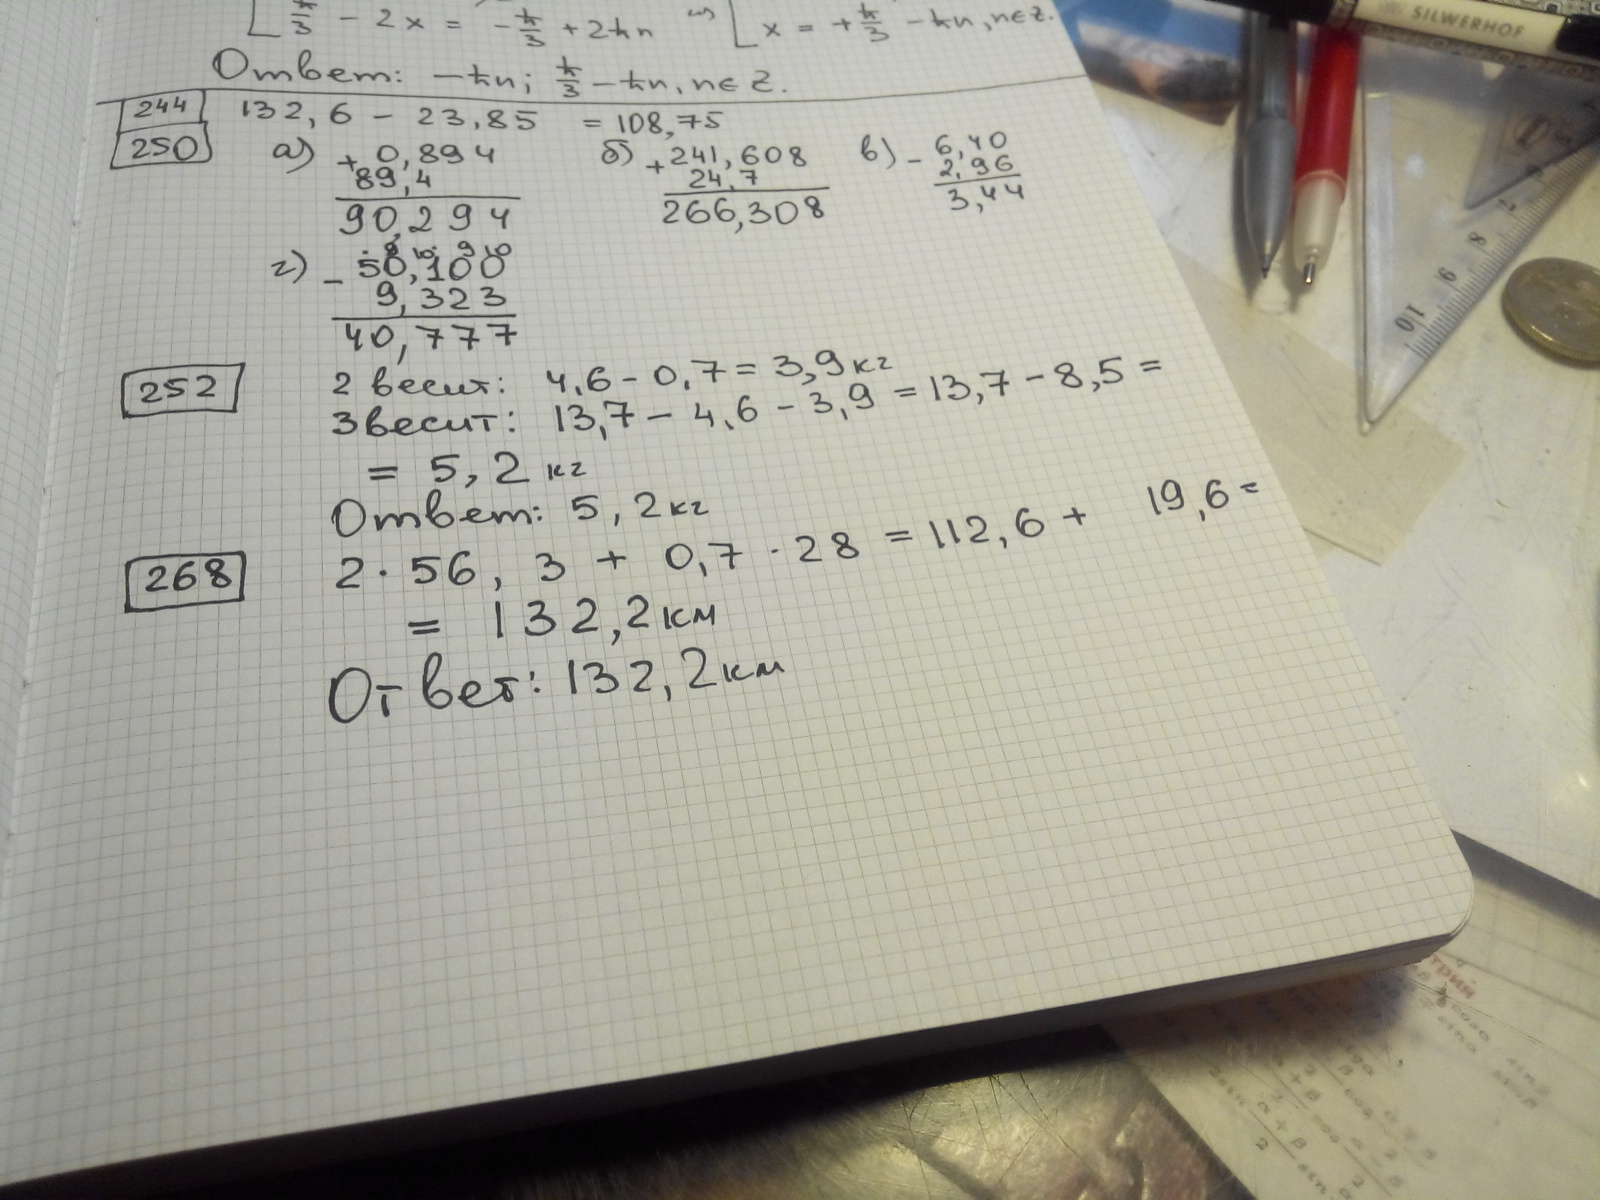 π/3 - 2x = -π/3 + 2πn ⇔ [ x = +π/3 - πn, n∈Z.
Ответ: -πn; π/3 - πn, n∈Z.
244 132,6 - 23,85 = 108,75
250 а) + 0,894 б) + 241,608 в) - 6,40
89,4 24,7 2,96
90,294 266,308 3,44
9 10 9 10
г) - 50,100
9,323
40,777
252 2 весит: 4,6 - 0,7 = 3,9 кг
3 весит: 13,7 - 4,6 - 3,9 = 13,7 - 8,5 =
= 5,2 кг
Ответ: 5,2 кг
268 2 · 56,3 + 0,7 · 28 = 112,6 + 19,6 =
= 132,2 км
Ответ: 132,2 км
SILWERHOF
7
8
9
10